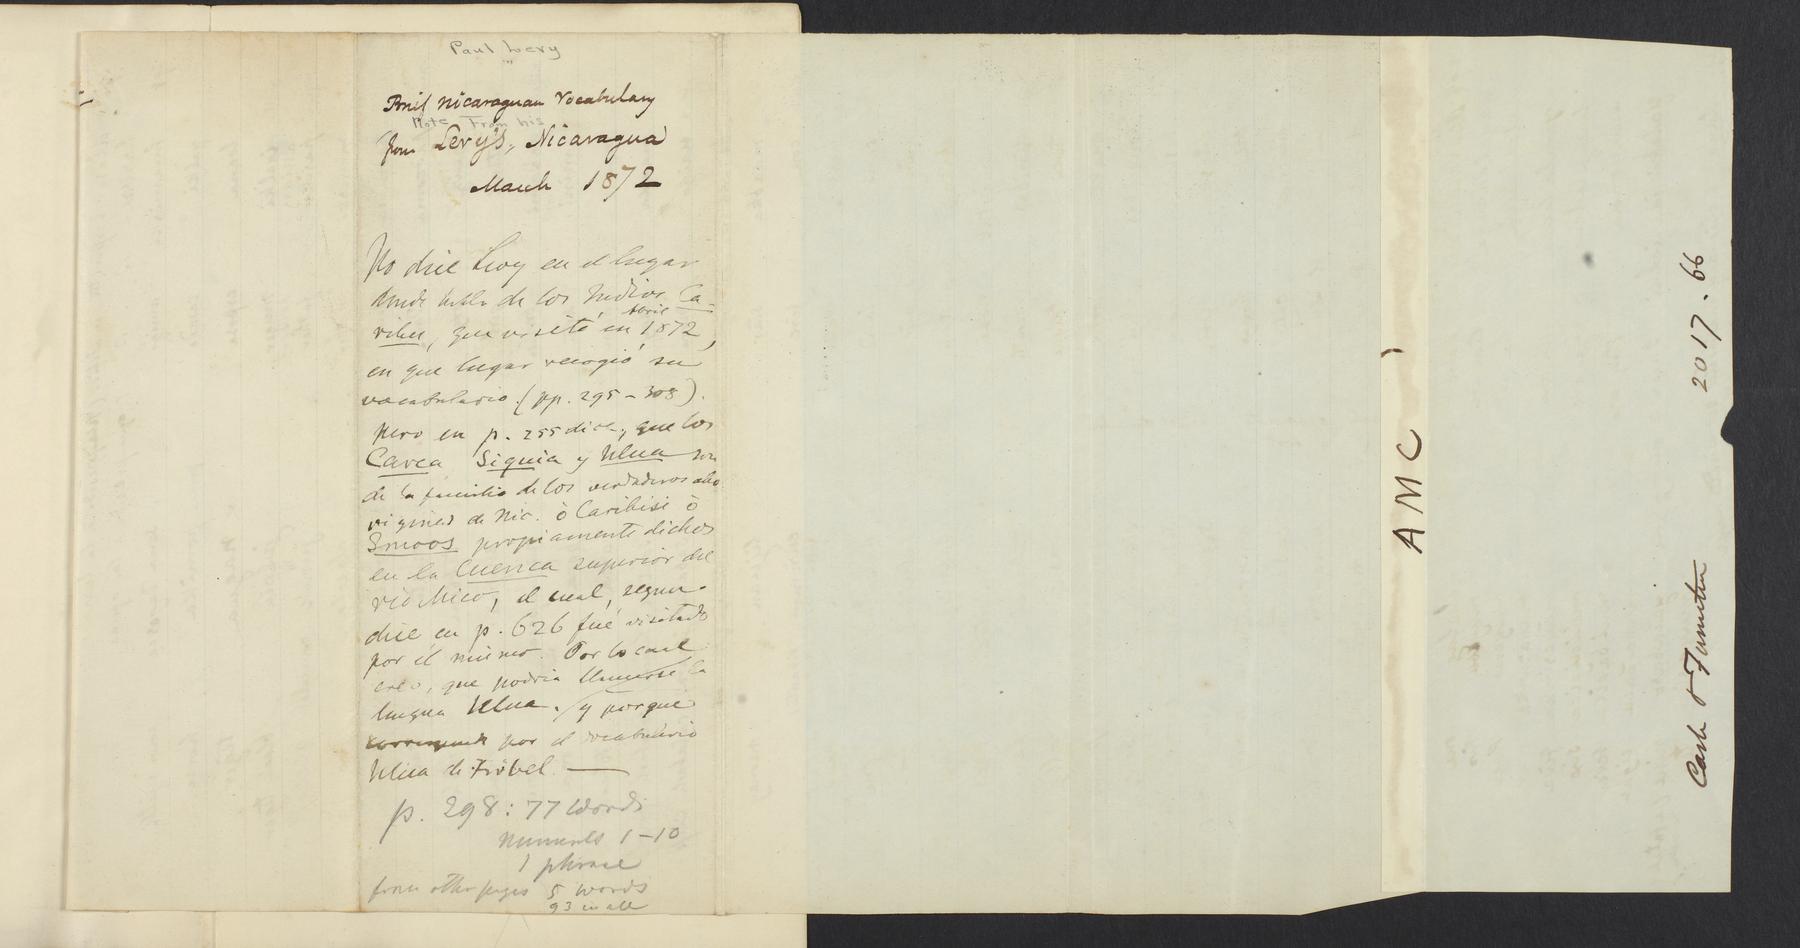 Paul Levy
Brief Nicaraguan Vocabulary
Note From his
from Levy's, Nicaragua
March 1872
No dice Levy en el lugar
donde habla de los Indios Ca-
ribes, que visitó en Abril 1872,
en que lugar recogió su
vocabulario (pp. 295-308).
Pero en p. 255 dice, que los
Carca Siquia y Ulua son
de la familia de los verdaderos abo
rigines de Nic. ò Caribisi ò
Smoos propiamente dichos
en la Cuenca superior del
rio Mico, el cual, segun
dice en p. 626 fué visitado
por él mismo. Por lo cual
creo, que podria llamarse la
lengua Ulua. y porque
por el vocabulario
Ulua de Fröbel. —
p. 298: 77 words
numerals 1-10
1 phrase
from other pages 5 words
93 in all
AMC
2017.66